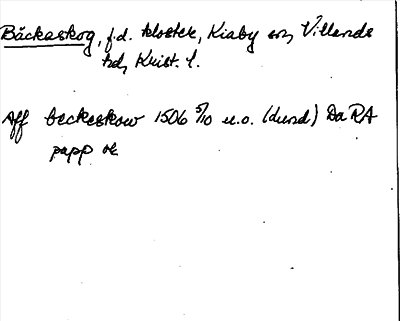 Bäckaskog, f.d. kloster, Kiaby sn, Villands
hd, Krist. l.
Aff beckeskow 1506 5/10 u.o. (dund) DaRA
papp or